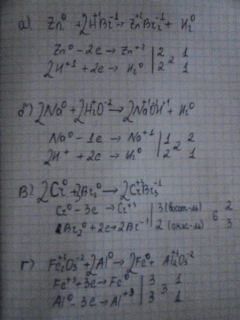 а) Zn⁰ + 2H⁺¹Br⁻¹ → Zn⁺²Br₂⁻¹ + H₂⁰
Zn⁰ - 2e → Zn⁺² | 2 | 1
2H⁺¹ + 2e → H₂⁰ | 2 | 2 | 1
б) 2Na⁰ + 2H₂O⁻² → 2Na⁺¹OH⁺¹ + H₂⁰
Na⁰ - 1e → Na⁺¹ | 1 | 2 | 2
2H⁺ + 2e → H₂⁰ | 2 | 1
в) 2Cr⁰ + 3Br₂⁰ → 2Cr⁺³Br₃⁻¹
Cr⁰ - 3e → Cr⁺³ | 3 (восст-ль) | 6 | 2
Br₂⁰ + 2e → 2Br⁻¹ | 2 (окис-ль) | 3
г) Fe₂⁺³O₃⁻² + 2Al⁰ → 2Fe⁰ + Al₂⁺³O₃⁻²
Fe⁺³ + 3e → Fe⁰ | 3 | 3 | 1
Al⁰ - 3e → Al⁺³ | 3 | 1